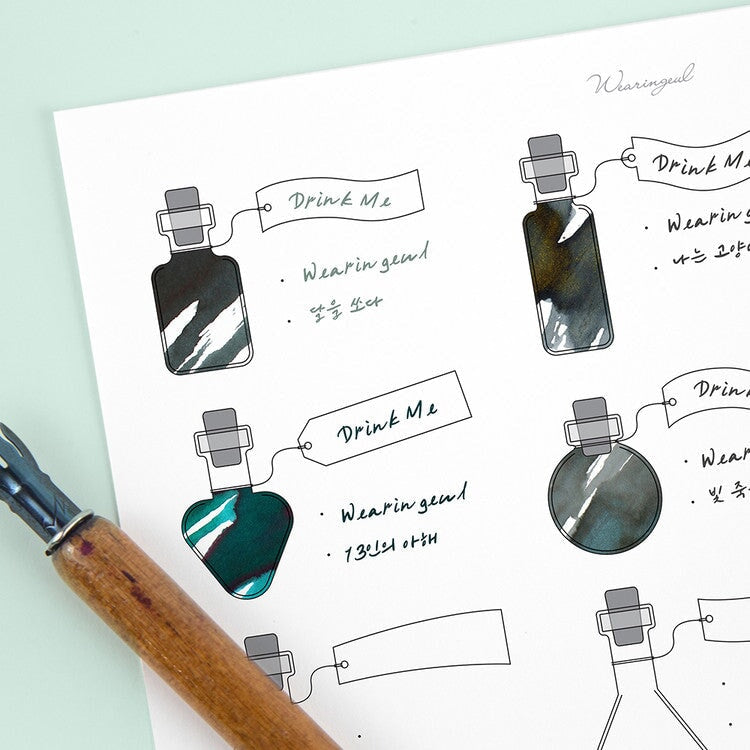 Wearingeul
Drink Me
Wearingeul
달을 쏘다
Drink Me
Wearing
나는 고양
Drink Me
Wearingeul
13인의 아해
Drink
Wear
빛